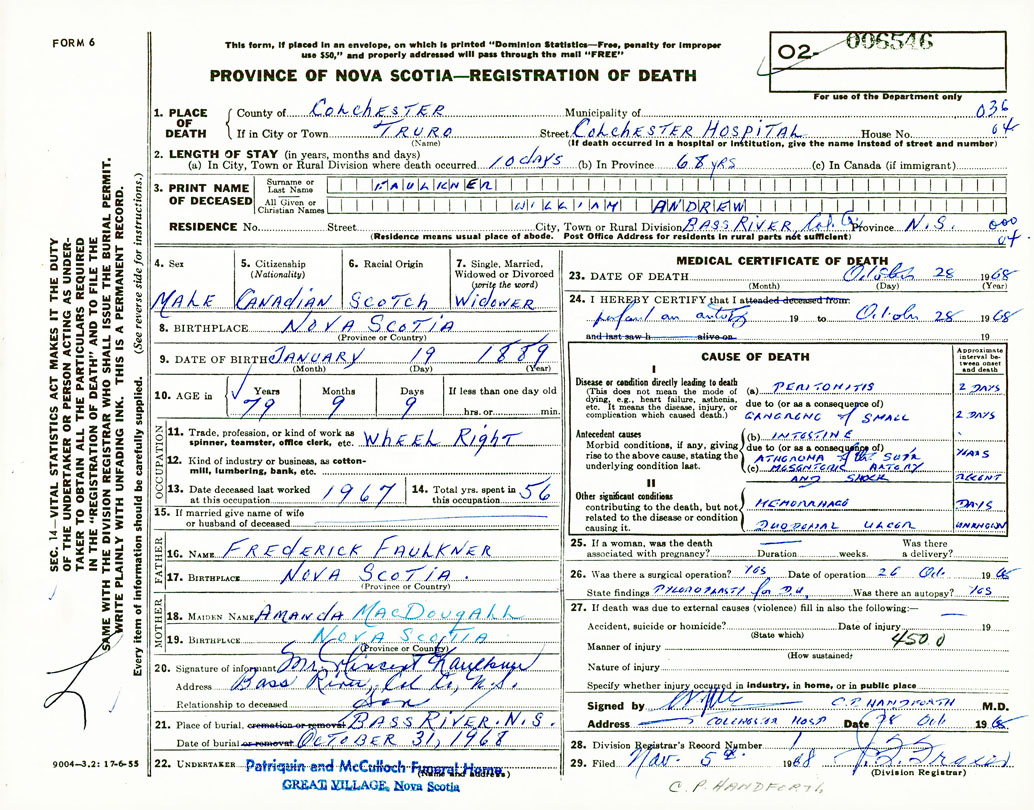 FORM 6
This form, if placed in an envelope, on which is printed "Dominion Statistics—Free, penalty for improper
use $50," and properly addressed will pass through the mail "FREE"
PROVINCE OF NOVA SCOTIA—REGISTRATION OF DEATH
02- 006546
For use of the Department only
1. PLACE OF DEATH
County of COLCHESTER Municipality of 036
If in City or Town TRURO Street COLCHESTER HOSPITAL House No. 04
(Name) (If death occurred in a hospital or institution, give the name instead of street and number)
2. LENGTH OF STAY (in years, months and days)
(a) In City, Town or Rural Division where death occurred 10 days (b) In Province 68 yrs (c) In Canada (if immigrant)
3. PRINT NAME OF DECEASED
Surname or Last Name FAULKNER
All Given or Christian Names WILLIAM ANDREW
RESIDENCE No. Street City, Town or Rural Division BASS RIVER, Col. Co. Province N.S. 000
(Residence means usual place of abode. Post Office Address for residents in rural parts not sufficient) 04.
SEC. 14—VITAL STATISTICS ACT MAKES IT THE DUTY
OF THE UNDERTAKER OR PERSON ACTING AS UNDER-
TAKER TO OBTAIN ALL THE PARTICULARS REQUIRED
IN THE "REGISTRATION OF DEATH" AND TO FILE THE
SAME WITH THE DIVISION REGISTRAR WHO SHALL ISSUE THE BURIAL PERMIT.
WRITE PLAINLY WITH UNFADING INK. THIS IS A PERMANENT RECORD.
Every item of information should be carefully supplied. (See reverse side for instructions.)
4. Sex MALE
5. Citizenship (Nationality) CANADIAN
6. Racial Origin SCOTCH
7. Single, Married, Widowed or Divorced (write the word) WIDOWER
8. BIRTHPLACE NOVA SCOTIA
(Province or Country)
9. DATE OF BIRTH JANUARY 19 1889
(Month) (Day) (Year)
10. AGE in Years 79 Months 9 Days 9 If less than one day old hrs. or min.
OCCUPATION
11. Trade, profession or kind of work as spinner, teamster, office clerk, etc. WHEEL RIGHT
12. Kind of industry or business, as cotton-mill, lumbering, bank, etc.
13. Date deceased last worked at this occupation 1967
14. Total yrs. spent in this occupation 56
15. If married give name of wife or husband of deceased
FATHER
16. NAME FREDERICK FAULKNER
17. BIRTHPLACE NOVA SCOTIA.
(Province or Country)
MOTHER
18. MAIDEN NAME AMANDA MACDOUGALL
19. BIRTHPLACE NOVA SCOTIA
(Province or Country)
20. Signature of informant Mr. Vincent Faulkner
Address Bass River, Col Co, N.S.
Relationship to deceased Son
21. Place of burial, cremation or removal BASS RIVER. N.S.
Date of burial or removal OCTOBER 31, 1968
22. UNDERTAKER Patriquin and McCulloch Funeral Home
(Name and address)
GREAT VILLAGE, Nova Scotia
9004-3.2: 17-6-55
MEDICAL CERTIFICATE OF DEATH
23. DATE OF DEATH October 28 1968
(Month) (Day) (Year)
24. I HEREBY CERTIFY that I attended deceased from:
19 to October 28 1968
and last saw h alive on 19
CAUSE OF DEATH
Approximate interval between onset and death
I
Disease or condition directly leading to death
(This does not mean the mode of dying, e.g., heart failure, asthenia, etc. It means the disease, injury, or complication which caused death.)
(a) PERITONITIS 2 DAYS
due to (or as a consequence of)
GANGRENE of SMALL 2 DAYS
Antecedent causes
Morbid conditions, if any, giving rise to the above cause, stating the underlying condition last.
(b) INTESTINE
due to (or as a consequence of)
ATHEROMA of the SUPR YEARS
(c) MESENTERIC ARTERY
AND SHOCK RECENT
II
Other significant conditions
contributing to the death, but not related to the disease or condition causing it.
HEMORRHAGE DAYS
DUODENAL ULCER UNKNOWN
25. If a woman, was the death associated with pregnancy? Duration weeks. Was there a delivery?
26. Was there a surgical operation? YES Date of operation 26 Oct. 1968
State findings PYLOROPLASTY for D.U. Was there an autopsy? YES
27. If death was due to external causes (violence) fill in also the following:—
Accident, suicide or homicide? Date of injury 19
(State which)
Manner of injury 450.0
(How sustained)
Nature of injury
Specify whether injury occurred in industry, in home, or in public place
Signed by C.P. HANDFORTH M.D.
Address COLCHESTER HOSP Date 28 Oct 1968
28. Division Registrar's Record Number 1
29. Filed Nov. 5th 1968
(Division Registrar)
C.P. HANDFORTH